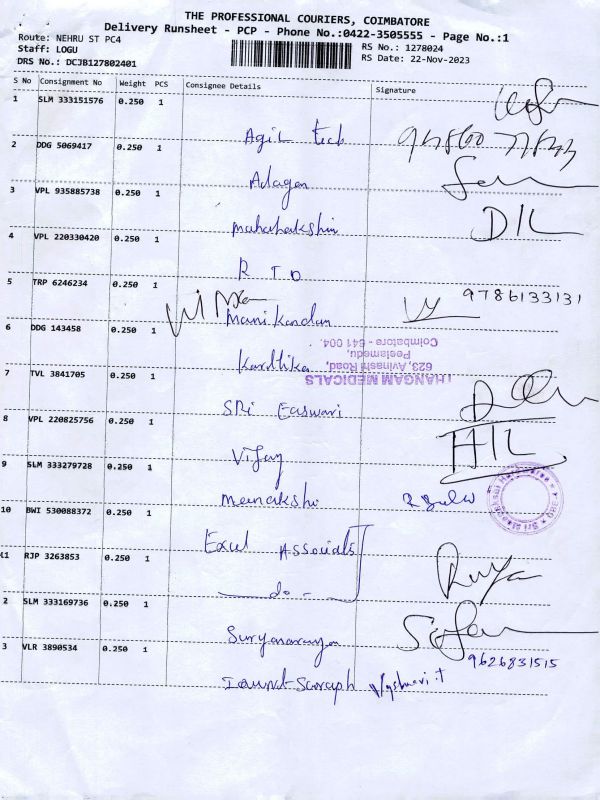 THE PROFESSIONAL COURIERS, COIMBATORE
Delivery Runsheet - PCP - Phone No.:0422-3505555 - Page No.:1
Route: NEHRU ST PC4
Staff: LOGU
DRS No.: DCJB127802401
RS No.: 1278024
RS Date: 22-Nov-2023
S No Consignment No Weight PCS Consignee Details Signature
1 SLM 333151576 0.250 1
Agil tech
2 DDG 5069417 0.250 1
Adagan
3 VPL 935885738 0.250 1
4 VPL 220330420 0.250 1
R T O
5 TRP 6246234 0.250 1 9786133131
Manikandan
6 DDG 143458 0.250 1
Karthika
THANGAM MEDICALS
623, Avinashi Road,
Peelamedu,
Coimbatore - 641 004.
7 TVL 3841705 0.250 1
SRi Easwari
8 VPL 220825756 0.250 1
Vijay
9 SLM 333279728 0.250 1
Meenakshi
10 BWI 530088372 0.250 1
Excel Associats
11 RJP 3263853 0.250 1
- do -
2 SLM 333169736 0.250 1
Suryanarayan
3 VLR 3890534 0.250 1 9626831515